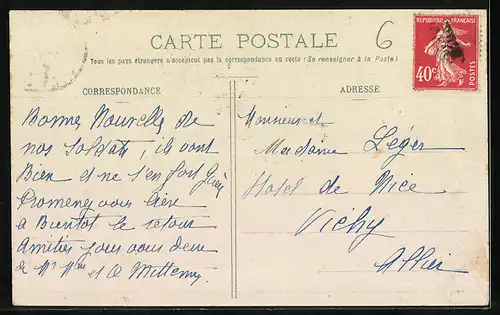 CARTE POSTALE
6
Tous les pays étrangers n'acceptent pas la correspondance au recto (Se renseigner à la Poste)
REPUBLIQUE FRANÇAISE
40c
POSTES
CORRESPONDANCE
ADRESSE
Bonnes Nouvelles de
nos Soldats, ils vont
Bien et ne s'en font
Promenez vous bien
a Bientot le retour
Amitiés pour vous deux
de Mr Mme et O
Monsieur et
Madame Léger
Hotel de Nice
Vichy
Allier